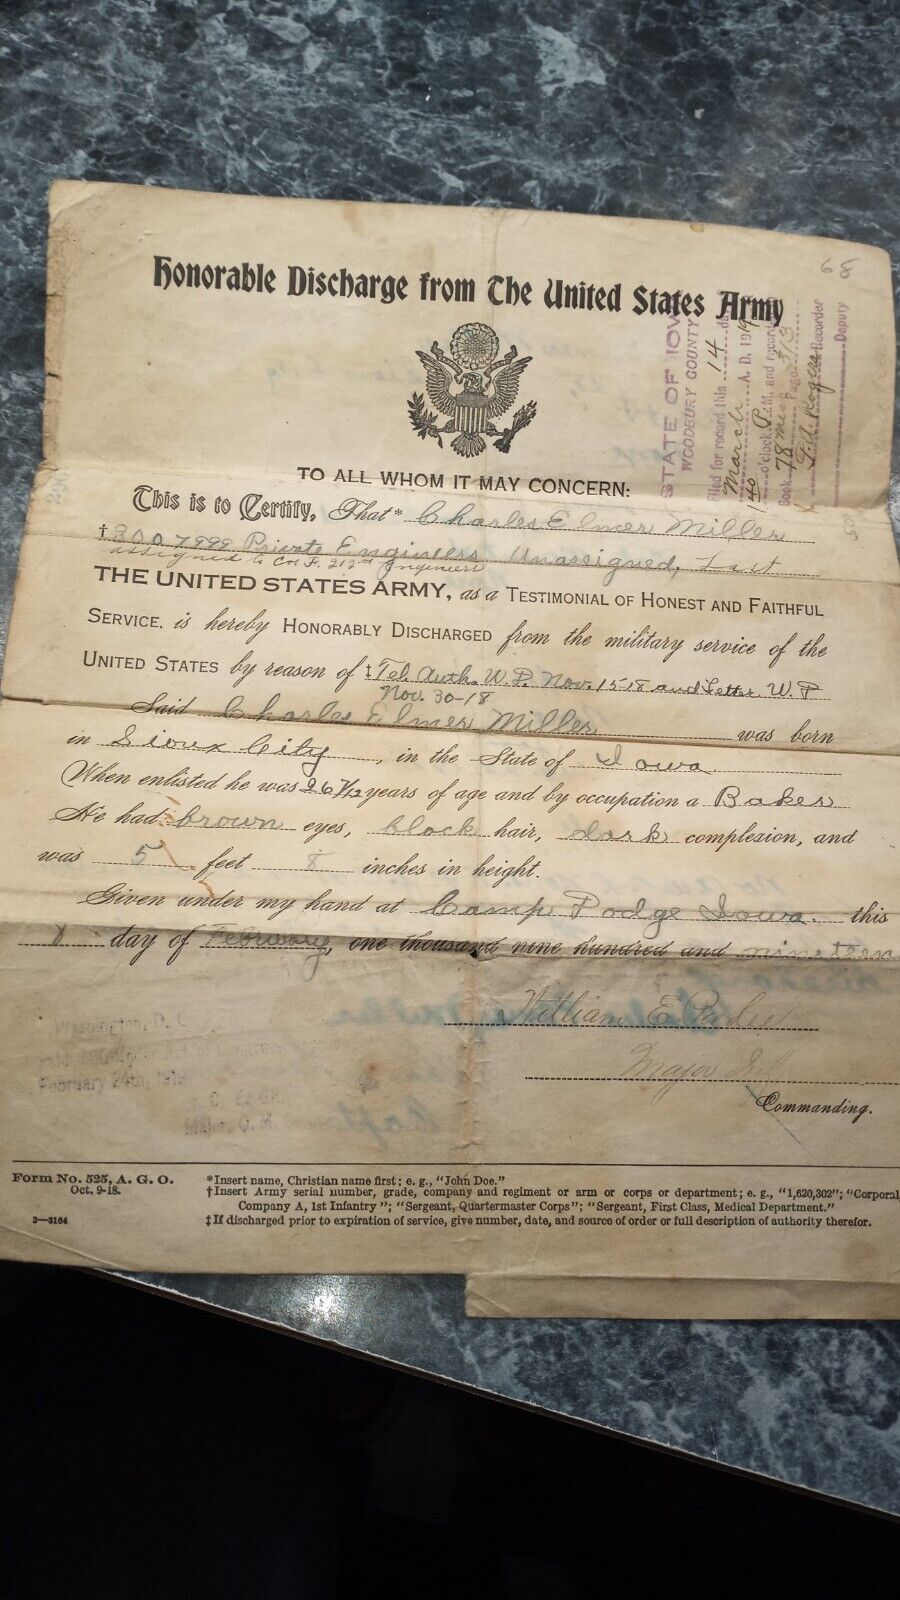 68
Honorable Discharge from The United States Army
STATE OF IOWA
WOODBURY COUNTY
Filed for record this 14 day
March A. D. 1919
1 40 o'clock P. M. and recorded
Book 78 Page 313
Recorder
Deputy
TO ALL WHOM IT MAY CONCERN:
This is to Certify, That* Charles Elmer Miller
†3007999 Private Engineers Unassigned, Last
assigned to Co. F. 212th Engineers
THE UNITED STATES ARMY, as a TESTIMONIAL OF HONEST AND FAITHFUL
SERVICE, is hereby HONORABLY DISCHARGED from the military service of the
UNITED STATES by reason of ‡Tel. Auth. W.D. Nov. 15-18 and Letter W.D
Nov. 30-18
Said Charles Elmer Miller was born
in Sioux City, in the State of Iowa
When enlisted he was 26 7/12 years of age and by occupation a Baker
He had brown eyes, black hair, dark complexion, and
was 5 feet 8 inches in height.
Given under my hand at Camp Dodge Iowa. this
8 day of February, one thousand nine hundred and nineteen
William E.
Major Inf
Commanding.
Washington, D. C.
February 24th, 1919
Major, Q. M.
Form No. 525, A. G. O.
Oct. 9-18.
3—3164
*Insert name, Christian name first; e. g., "John Doe."
†Insert Army serial number, grade, company and regiment or arm or corps or department; e. g., "1,620,302"; "Corporal,
Company A, 1st Infantry"; "Sergeant, Quartermaster Corps"; "Sergeant, First Class, Medical Department."
‡If discharged prior to expiration of service, give number, date, and source of order or full description of authority therefor.